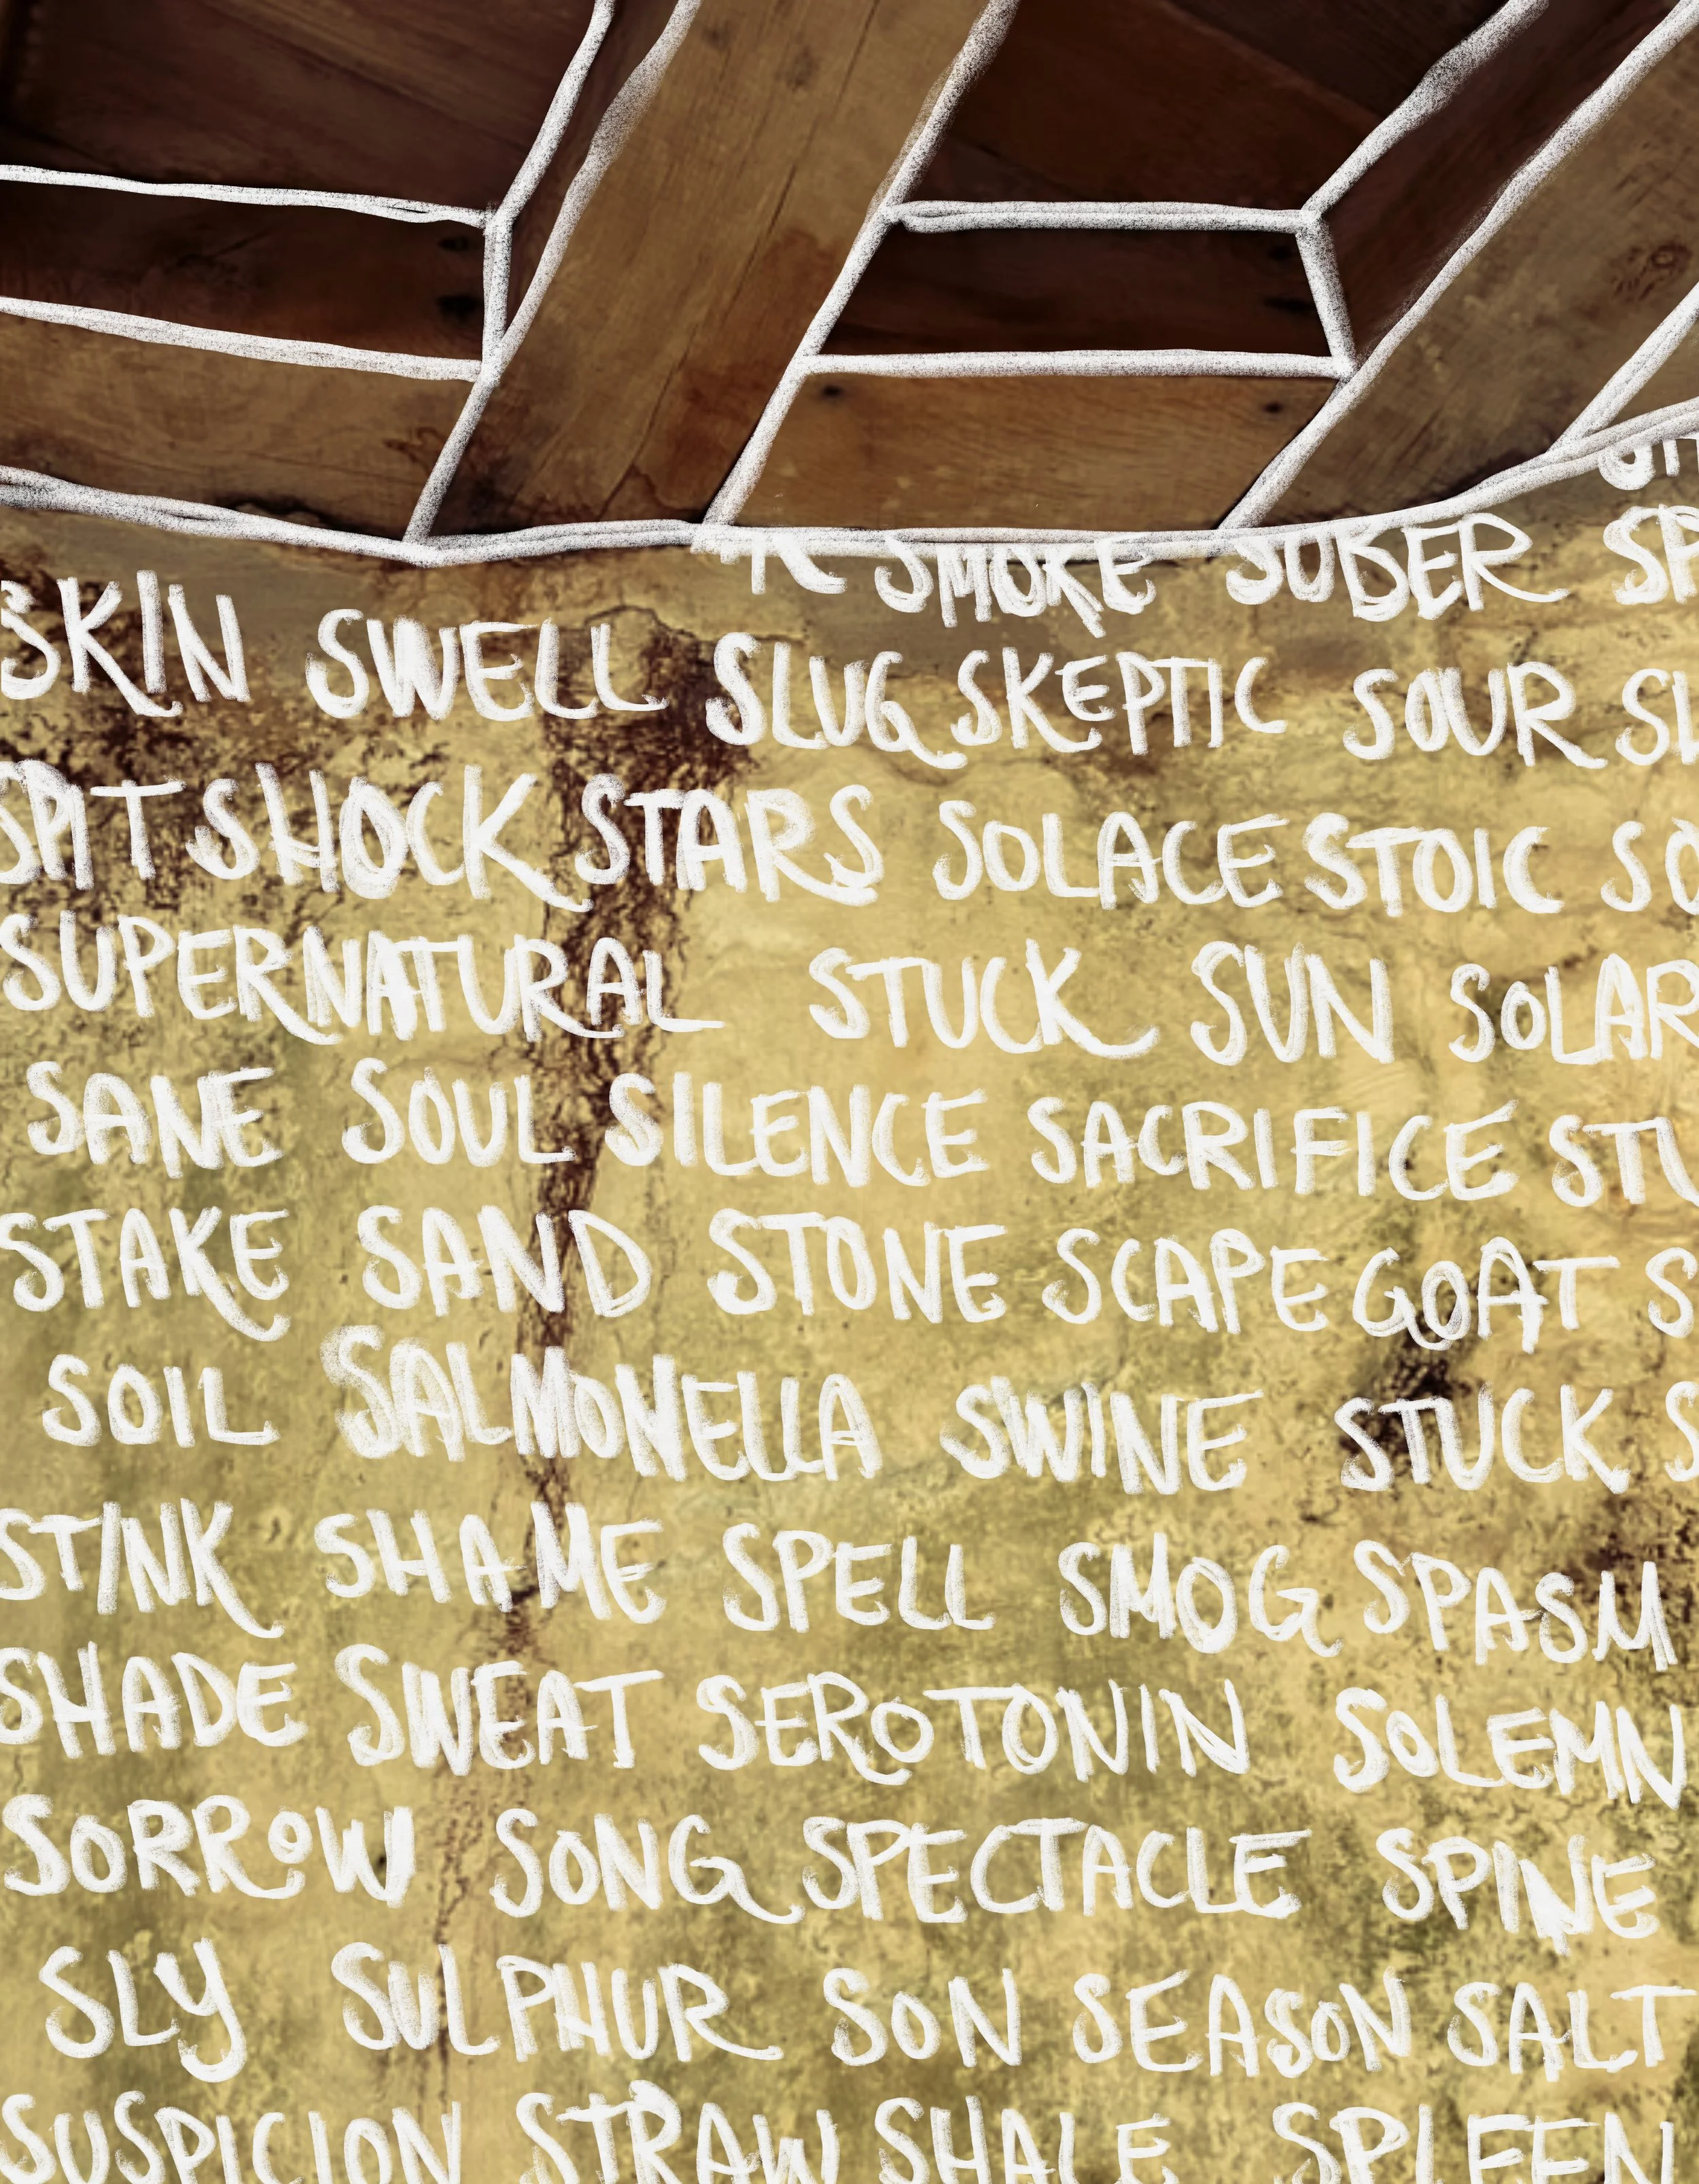 SMOKE SOBER
SKIN SWELL SLUG SKEPTIC SOUR
SPIT SHOCK STARS SOLACE STOIC
SUPERNATURAL STUCK SUN SOLAR
SANE SOUL SILENCE SACRIFICE
STAKE SAND STONE SCAPEGOAT
SOIL SALMONELLA SWINE STUCK
STINK SHAME SPELL SMOG SPASM
SHADE SWEAT SEROTONIN SOLEMN
SORROW SONG SPECTACLE SPINE
SLY SULPHUR SON SEASON SALT
SUSPICION STRAW SHALE SPLEEN